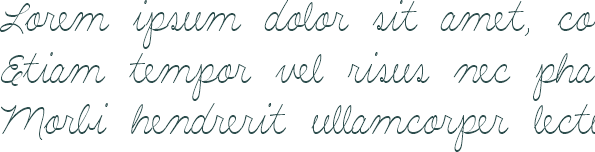 Lorem ipsum dolor sit amet, co
Etiam tempor vel risus nec pha
Morbi hendrerit ullamcorper lecte